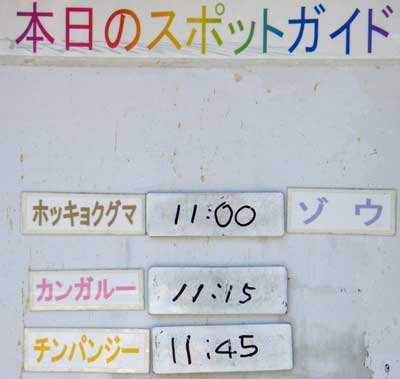 本日のスポットガイド
ホッキョクグマ 11:00 ゾウ
カンガルー 11:15
チンパンジー 11:45